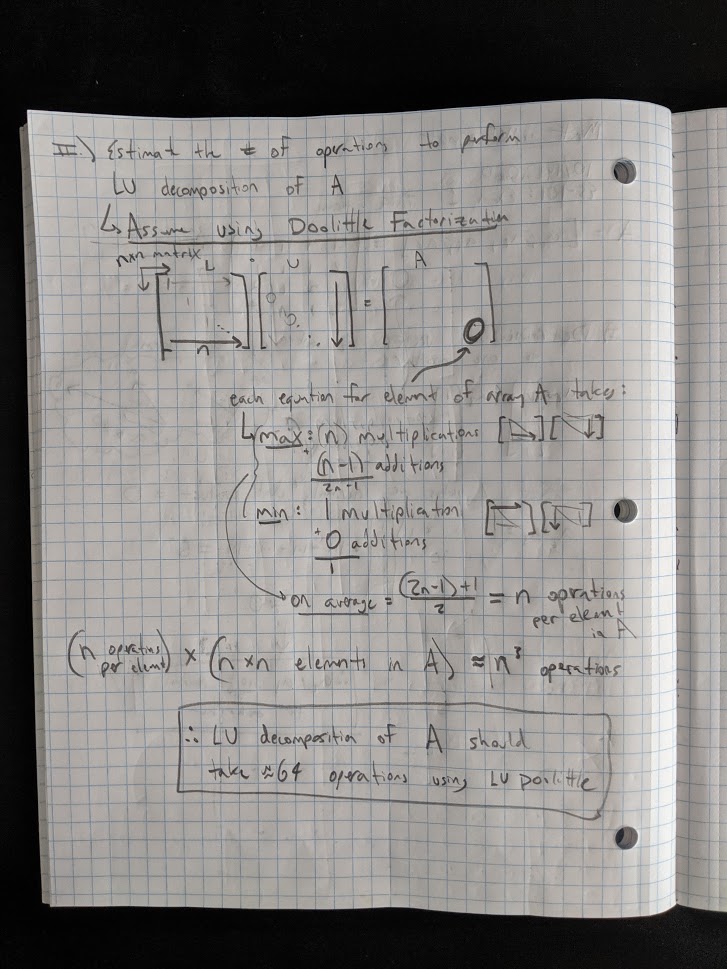 II.) Estimate the # of operations to perform
LU decomposition of A
↳ Assume using Doolittle Factorization
nxn matrix
L · U = A
1
0
0
n
each equation for element of array A takes:
↳ max: (n) multiplications
+ (n-1) additions
2n-1
min: 1 multiplication
+ 0 additions
1
on average = ((2n-1)+1)/2 = n oprations
per elemt
in A
(n operatins per elemt) × (n × n elements in A) ≈ n³ operations
∴ LU decomposition of A should
take ≈64 operations using LU Doolittle